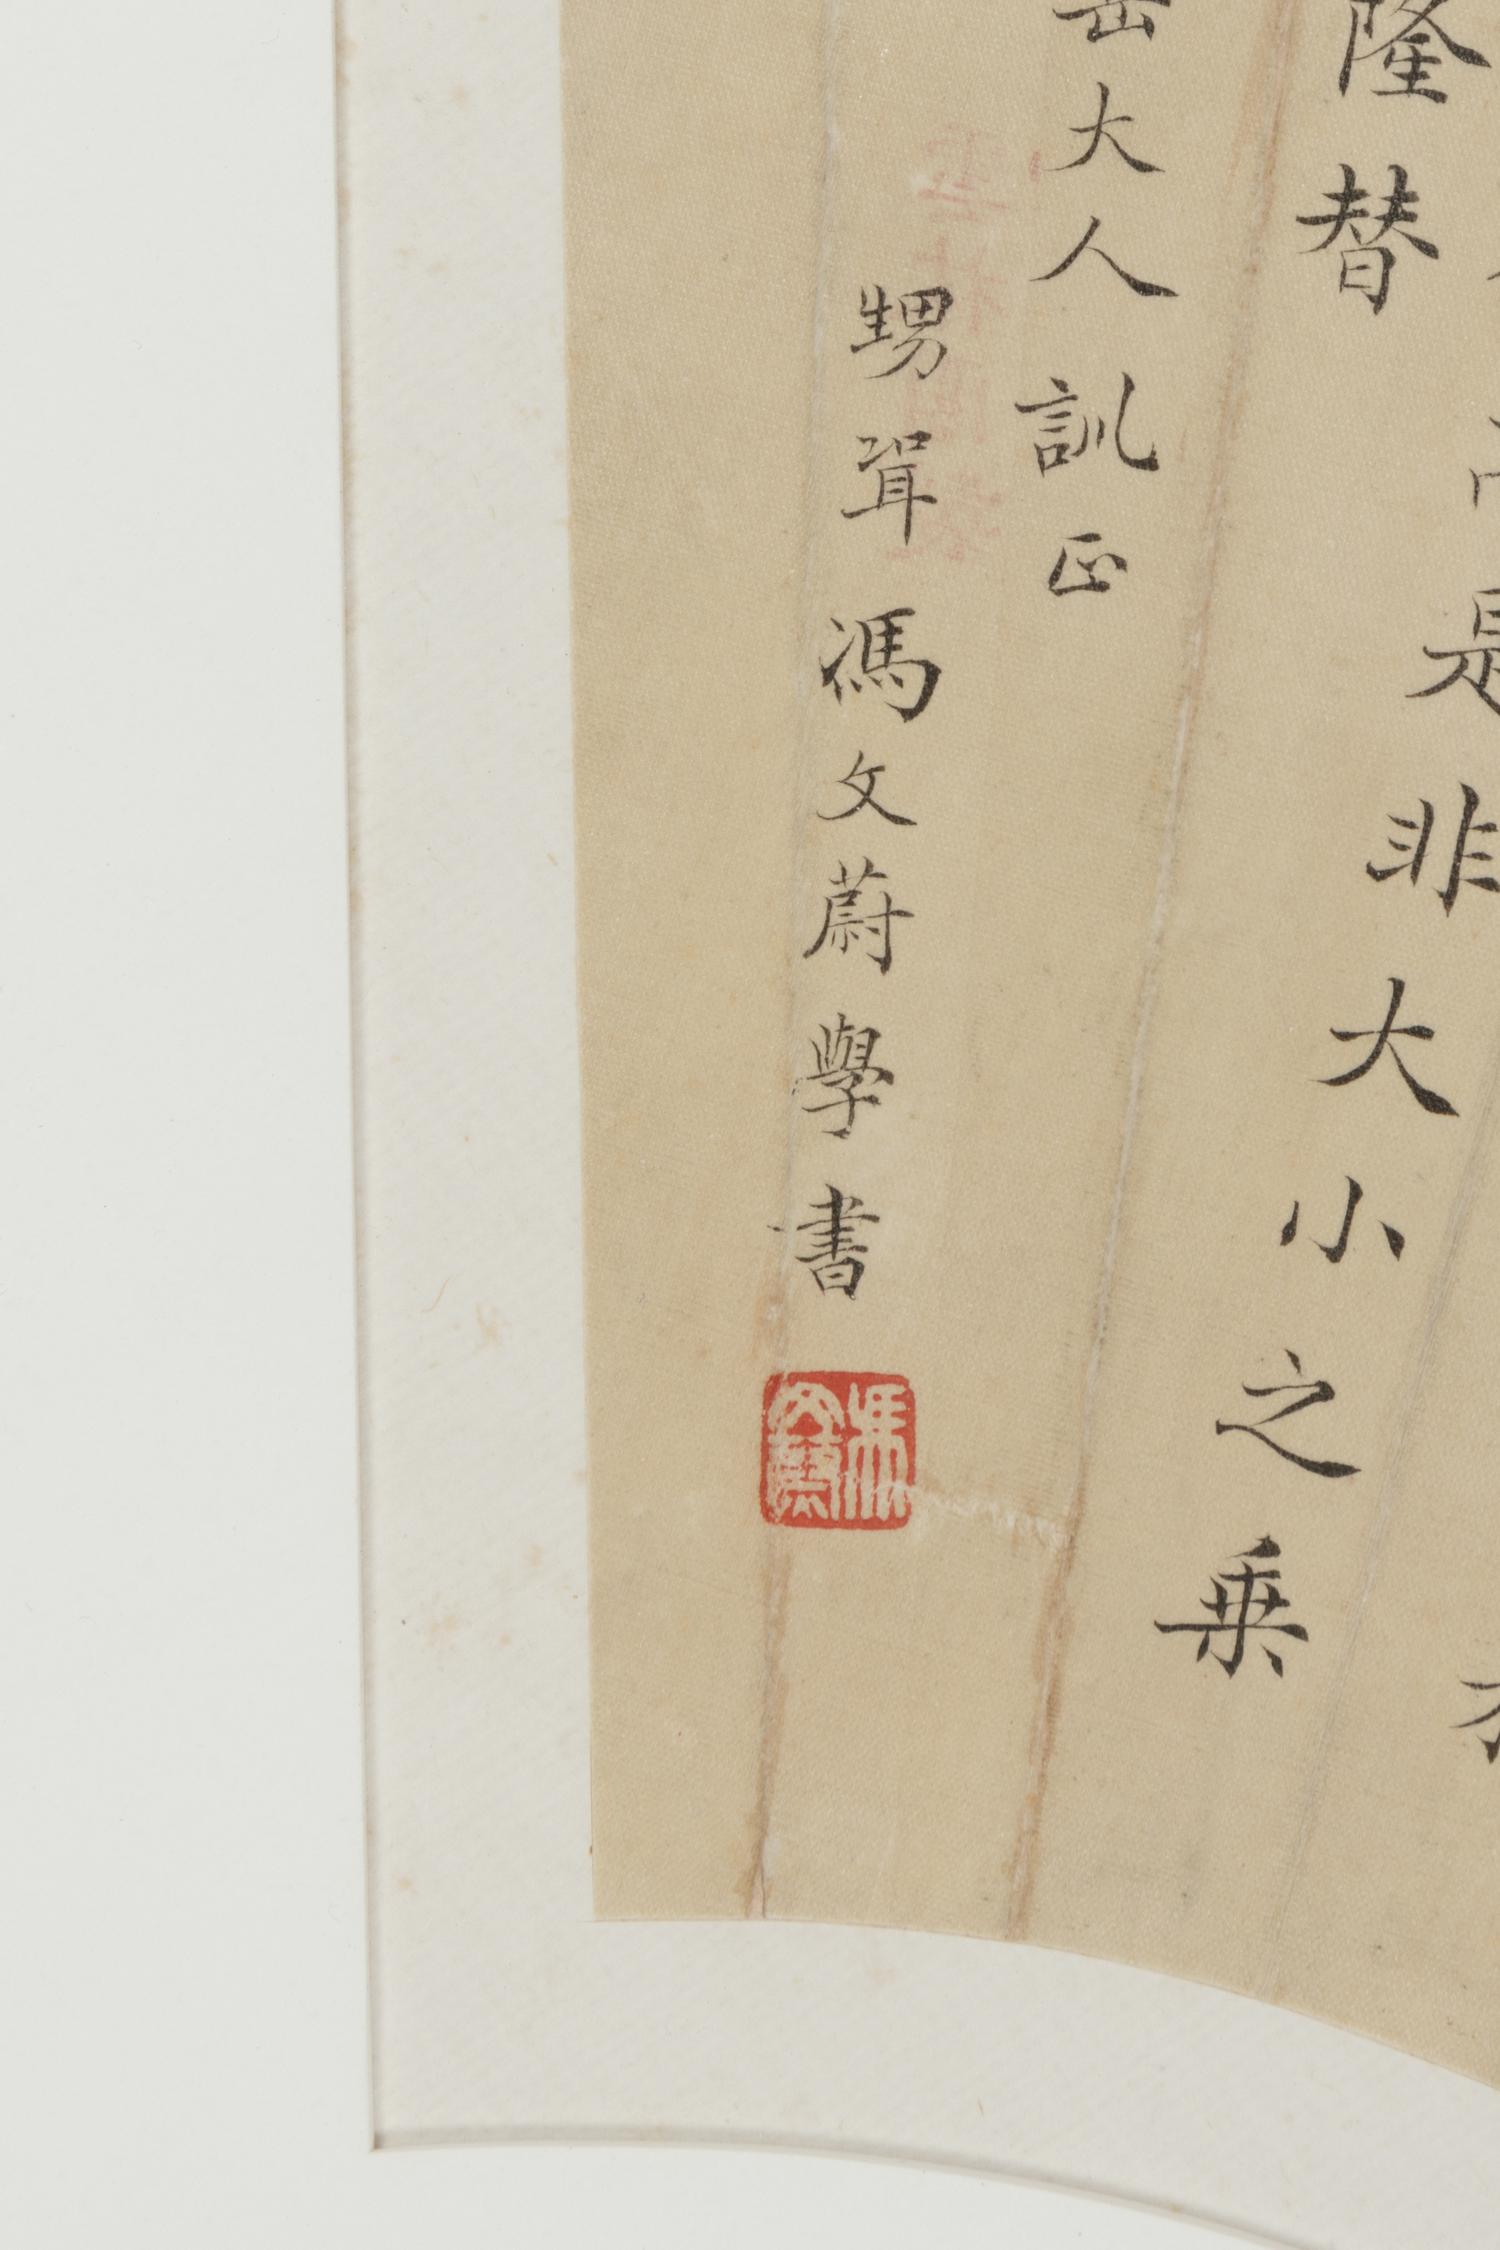 是非大小之乗
隆替
岳大人訓正
甥壻馮文蔚學書
馮文蔚